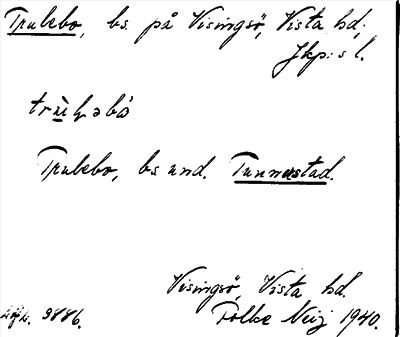 Trulebo, bs. på Visingsö, Vista hd;
Jkp:s l.
Trulebo, bs und. Tunnerstad.
Visingsö, Vista hd.
9886. Folke Neij 1940.